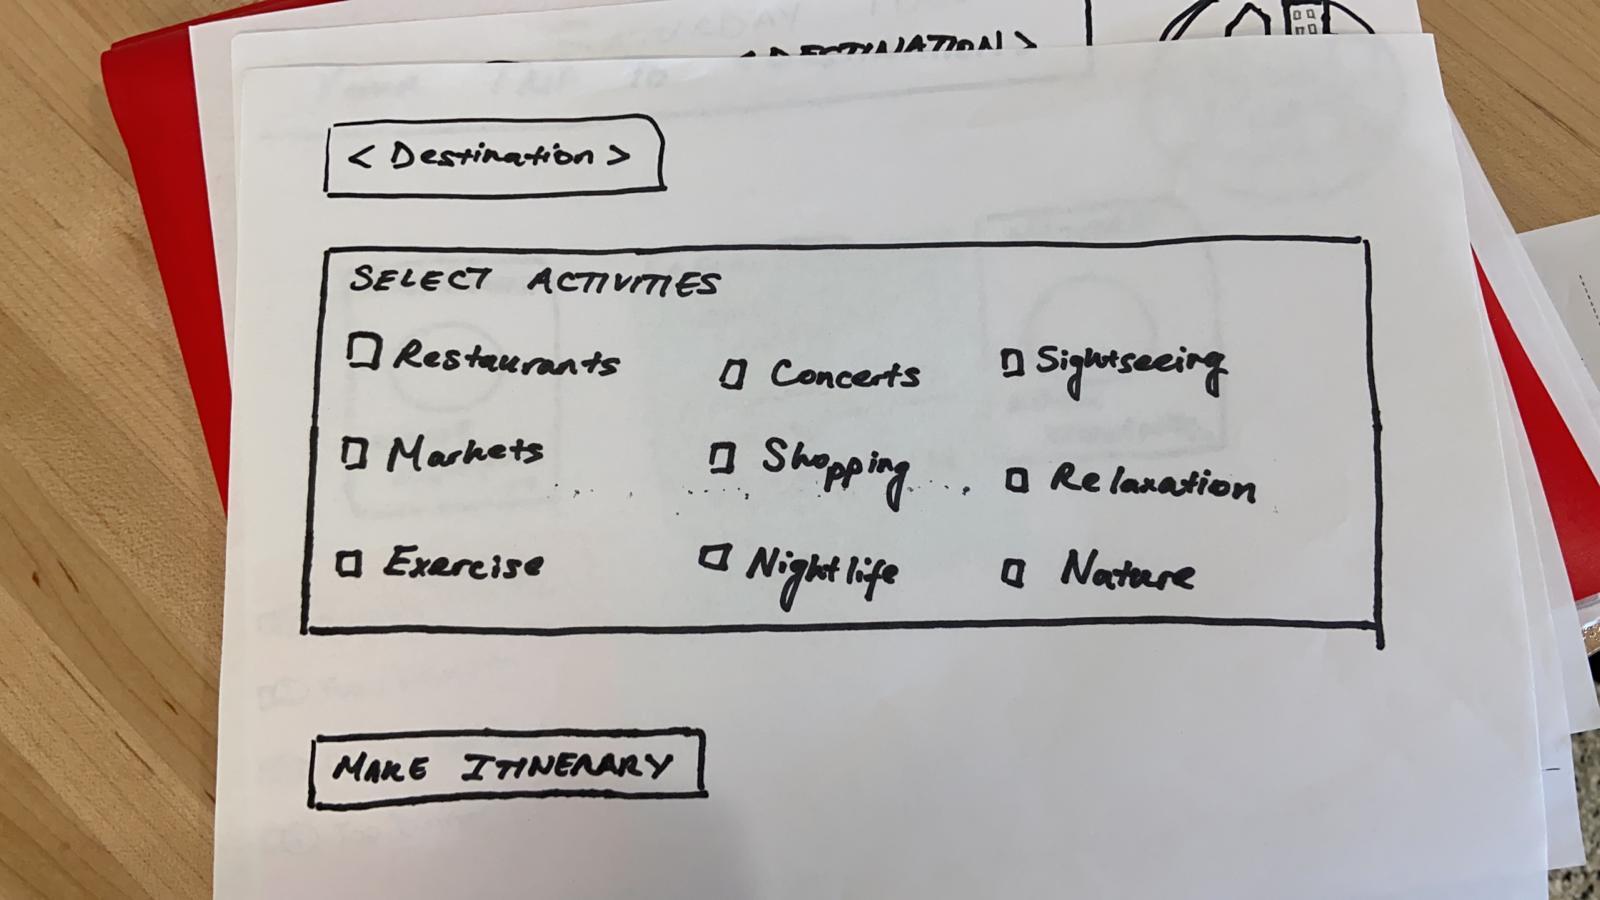 <DESTINATION>
<Destination>
SELECT ACTIVITIES
Restaurants
Concerts
Sightseeing
Markets
Shopping
Relaxation
Exercise
Nightlife
Nature
MAKE ITINERARY